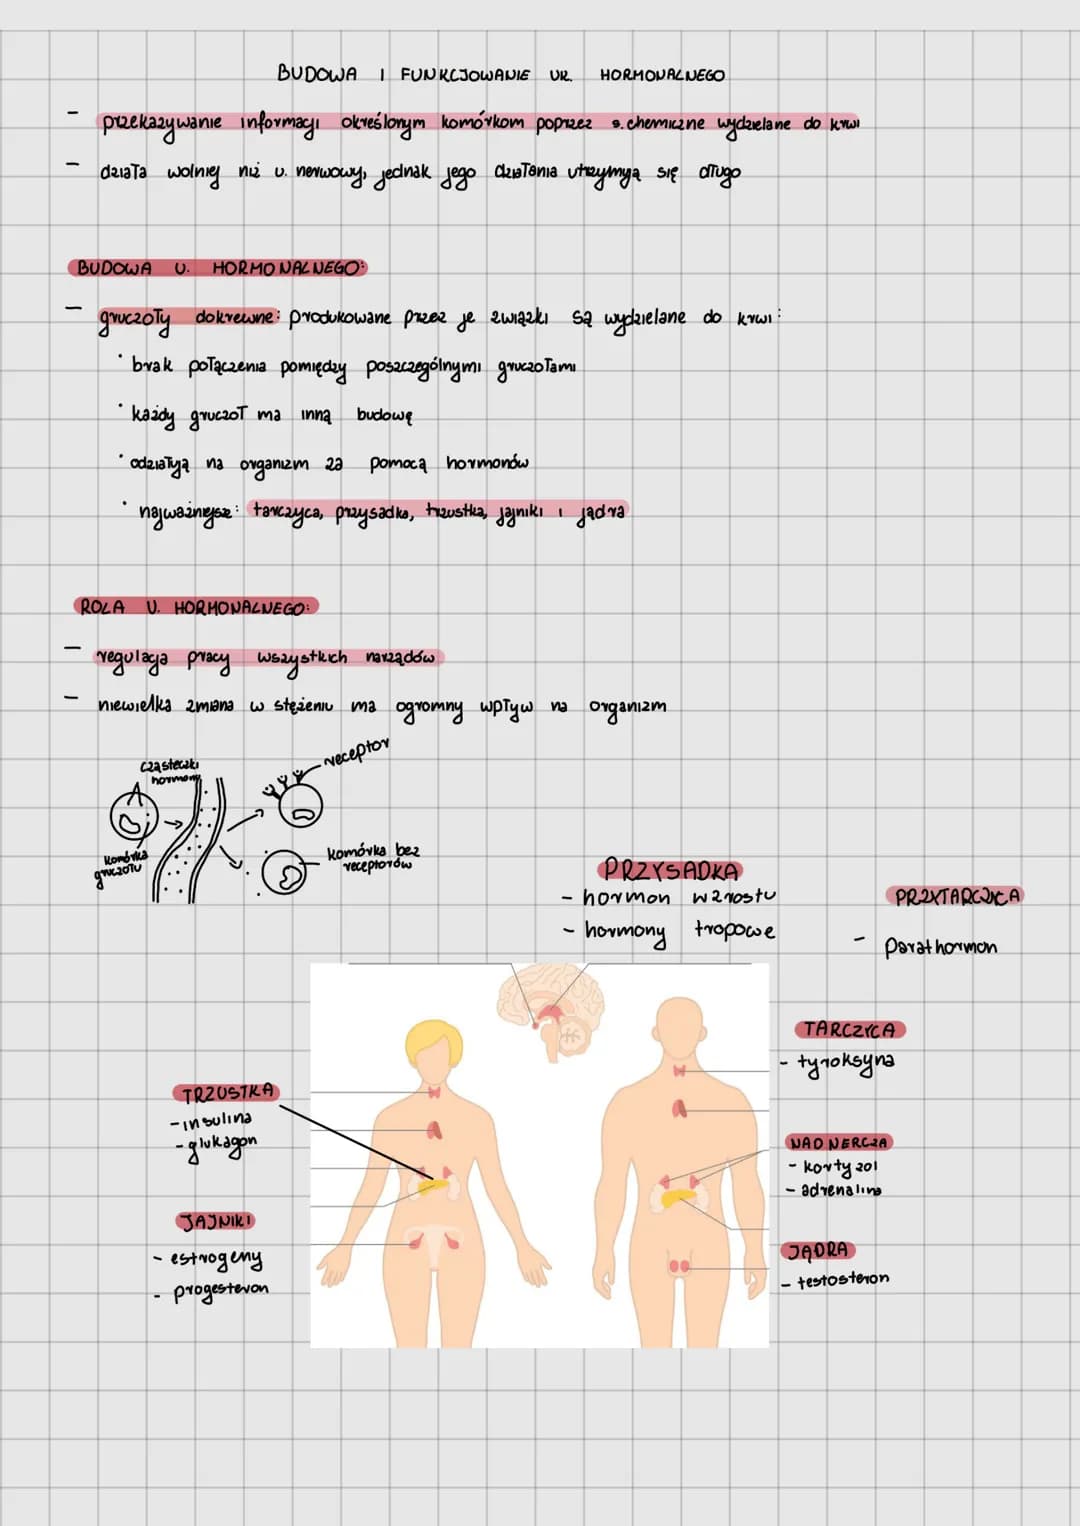 BUDOWA I FUNKCJOWANIE UK. HORMONALNEGO
- przekazywanie informacji określonym komórkom poprzez s. chemiczne wydzielane do krwi
- działa wolniej niż u. nerwowy, jednak jego działania utrzymyją się długo
BUDOWA U. HORMONALNEGO:
- gruczoły dokrewne: produkowane przez je związki są wydzielane do krwi:
• brak połączenia pomiędzy poszczególnymi gruczołami
• każdy gruczoł ma inną budowę
• odziałują na organizm za pomocą hormonów
• najważniejsze: tarczyca, przysadka, trzustka, jajniki i jądra
ROLA U. HORMONALNEGO:
- regulacja pracy wszystkich narządów
- niewielka zmiana w stężeniu ma ogromny wpływ na organizm
cząsteczki
hormony
receptor
komórka
gruczołu
komórka bez
receptorów
PRZYSADKA
- hormon wzrostu
- hormony tropowe
PRZYTARCZYCA
- parathormon
TARCZYCA
- tyroksyna
TRZUSTKA
- insulina
- glukagon
NADNERCZA
- kortyzol
- adrenalina
JAJNIKI
- estrogeny
- progesteron
JĄDRA
- testosteron